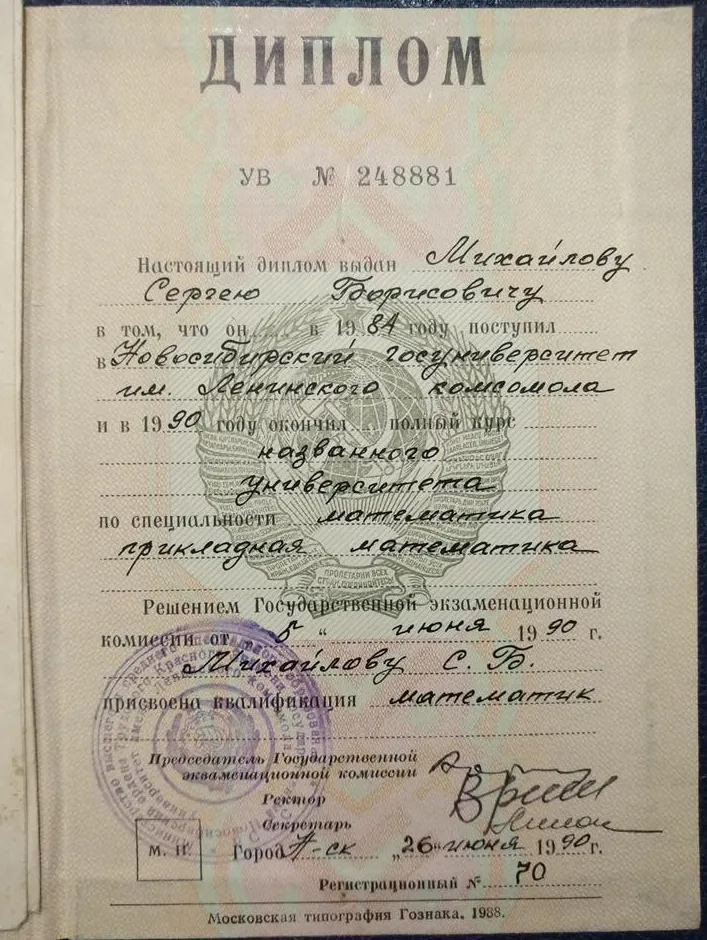 ДИПЛОМ
УВ № 248881
Настоящий диплом выдан Михайлову
Сергею Борисовичу
в том, что он в 1984 году поступил
в Новосибирский госуниверситет
им. Ленинского комсомола
и в 1990 году окончил полный курс
названного
университета
по специальности математика
прикладная математика
ПРОЛЕТАРИИ ВСЕХ
СТРАН, СОЕДИНЯЙТЕСЬ!
Решением Государственной экзаменационной
комиссии от 5 " июня 1990 г.
Михайлову С. Б.
присвоена квалификация математик
Председатель Государственной
экзаменационной комиссии
Ректор
Секретарь
М. П. Город Н-ск „26 " июня 1990 г.
Регистрационный № 70
Московская типография Гознака. 1988.